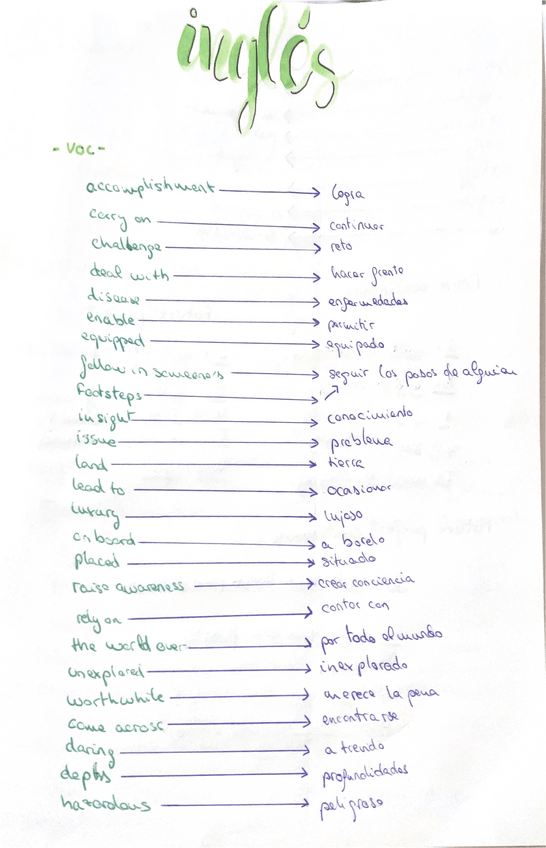 inglés
- VOC -
accomplishment → logra
carry on → continuar
challenge → reto
deal with → hacer frente
disease → enfermedades
enable → permitir
equipped → equipado
follow in someone's → seguir los pasos de alguien
footsteps →
insight → conocimiento
issue → problema
land → tierra
lead to → ocasionar
luxury → lujoso
on board → a bordo
placed → situado
raise awareness → crear conciencia
rely on → contar con
the world over → por todo el mundo
unexplored → inexplorado
worthwhile → merece la pena
come across → encontrarse
daring → atrevido
depths → profundidades
hazardous → peligroso